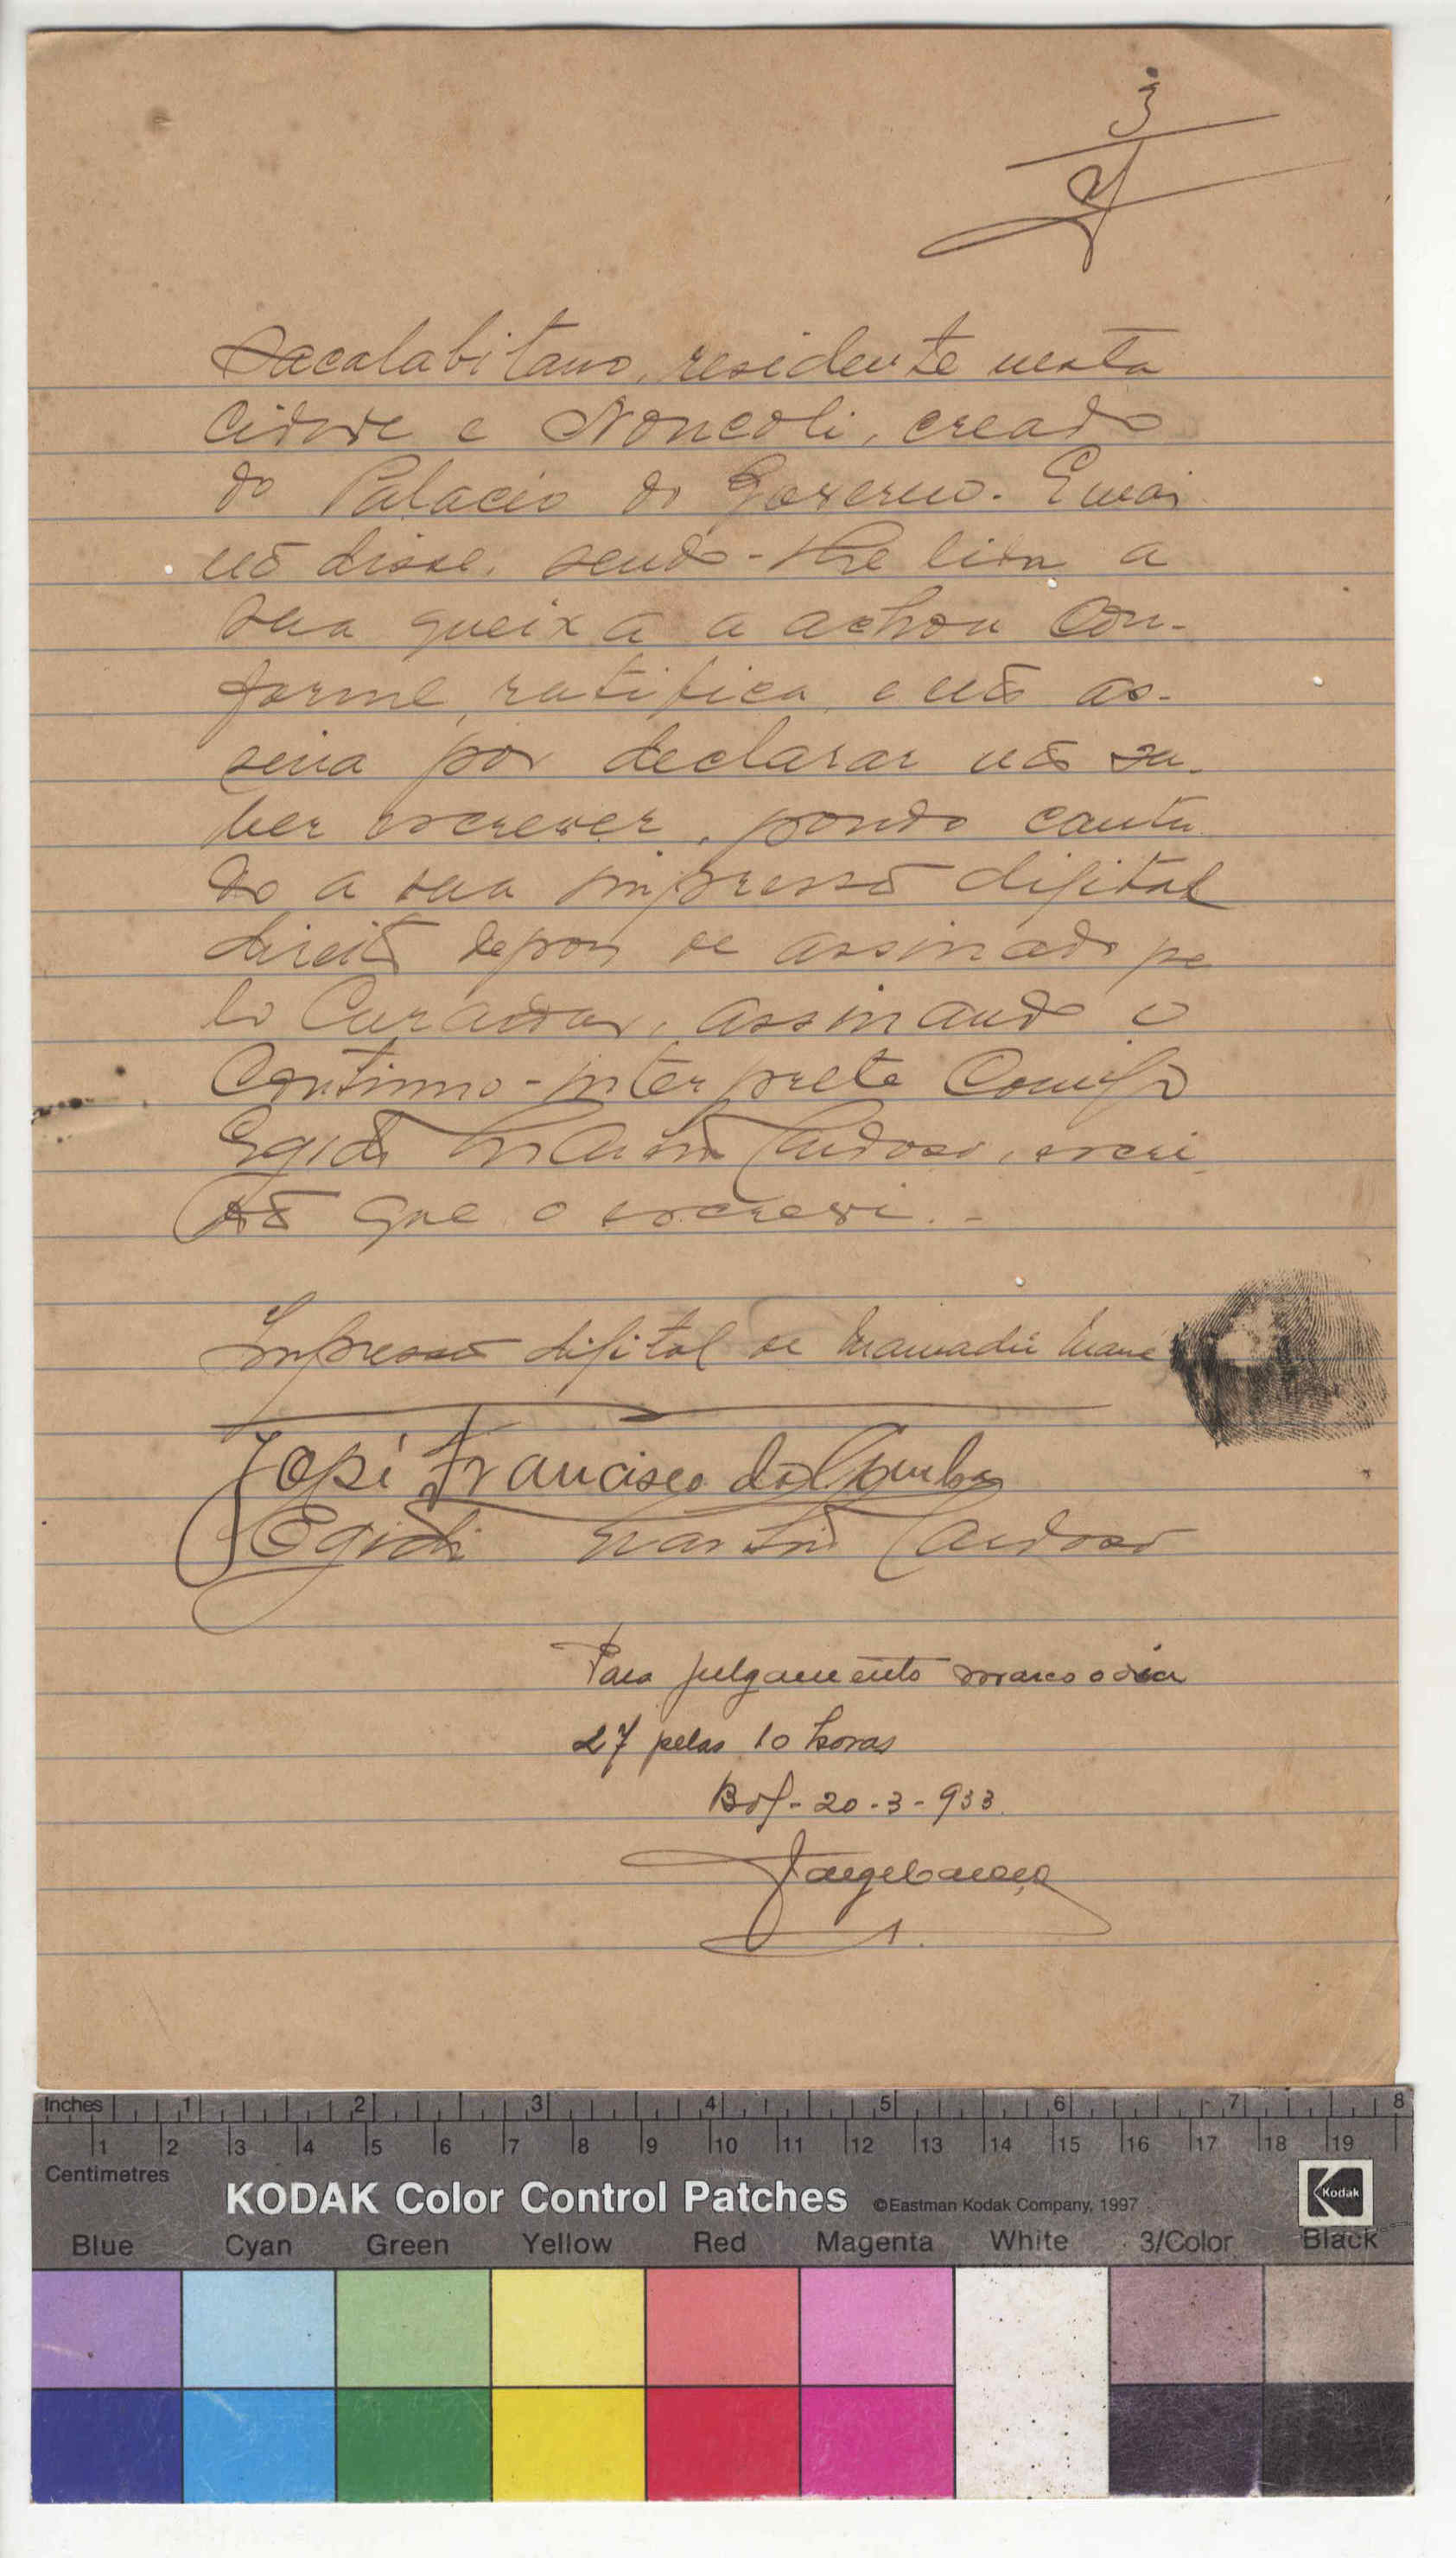 3
Sacalabitano, residente nesta
cidade e Noncoli, creado
do Palacio do Governo. E mais
não disse, sendo-lhe lida a
sua queixa a achou con-
forme, ratifica, e não as-
sina por declarar não sa-
ber escrever, pondo contu
do a sua impressão digital
direita depois de assinado pe
lo Curador, assinando o
Continuo-interprete comigo
Egidio Martins Cardoso, escri
vão que o escrevi. -
Impressão digital de Mamadú Mané
José Francisco da
Egidio Martins Cardoso
Para julgamento marco o dia
27 pelas 10 horas
Bol- 20-3-933
Inches 1 2 3 4 5 6 7 8
1 2 3 4 5 6 7 8 9 10 11 12 13 14 15 16 17 18 19
Centimetres
KODAK Color Control Patches ©Eastman Kodak Company, 1997 Kodak
Blue Cyan Green Yellow Red Magenta White 3/Color Black